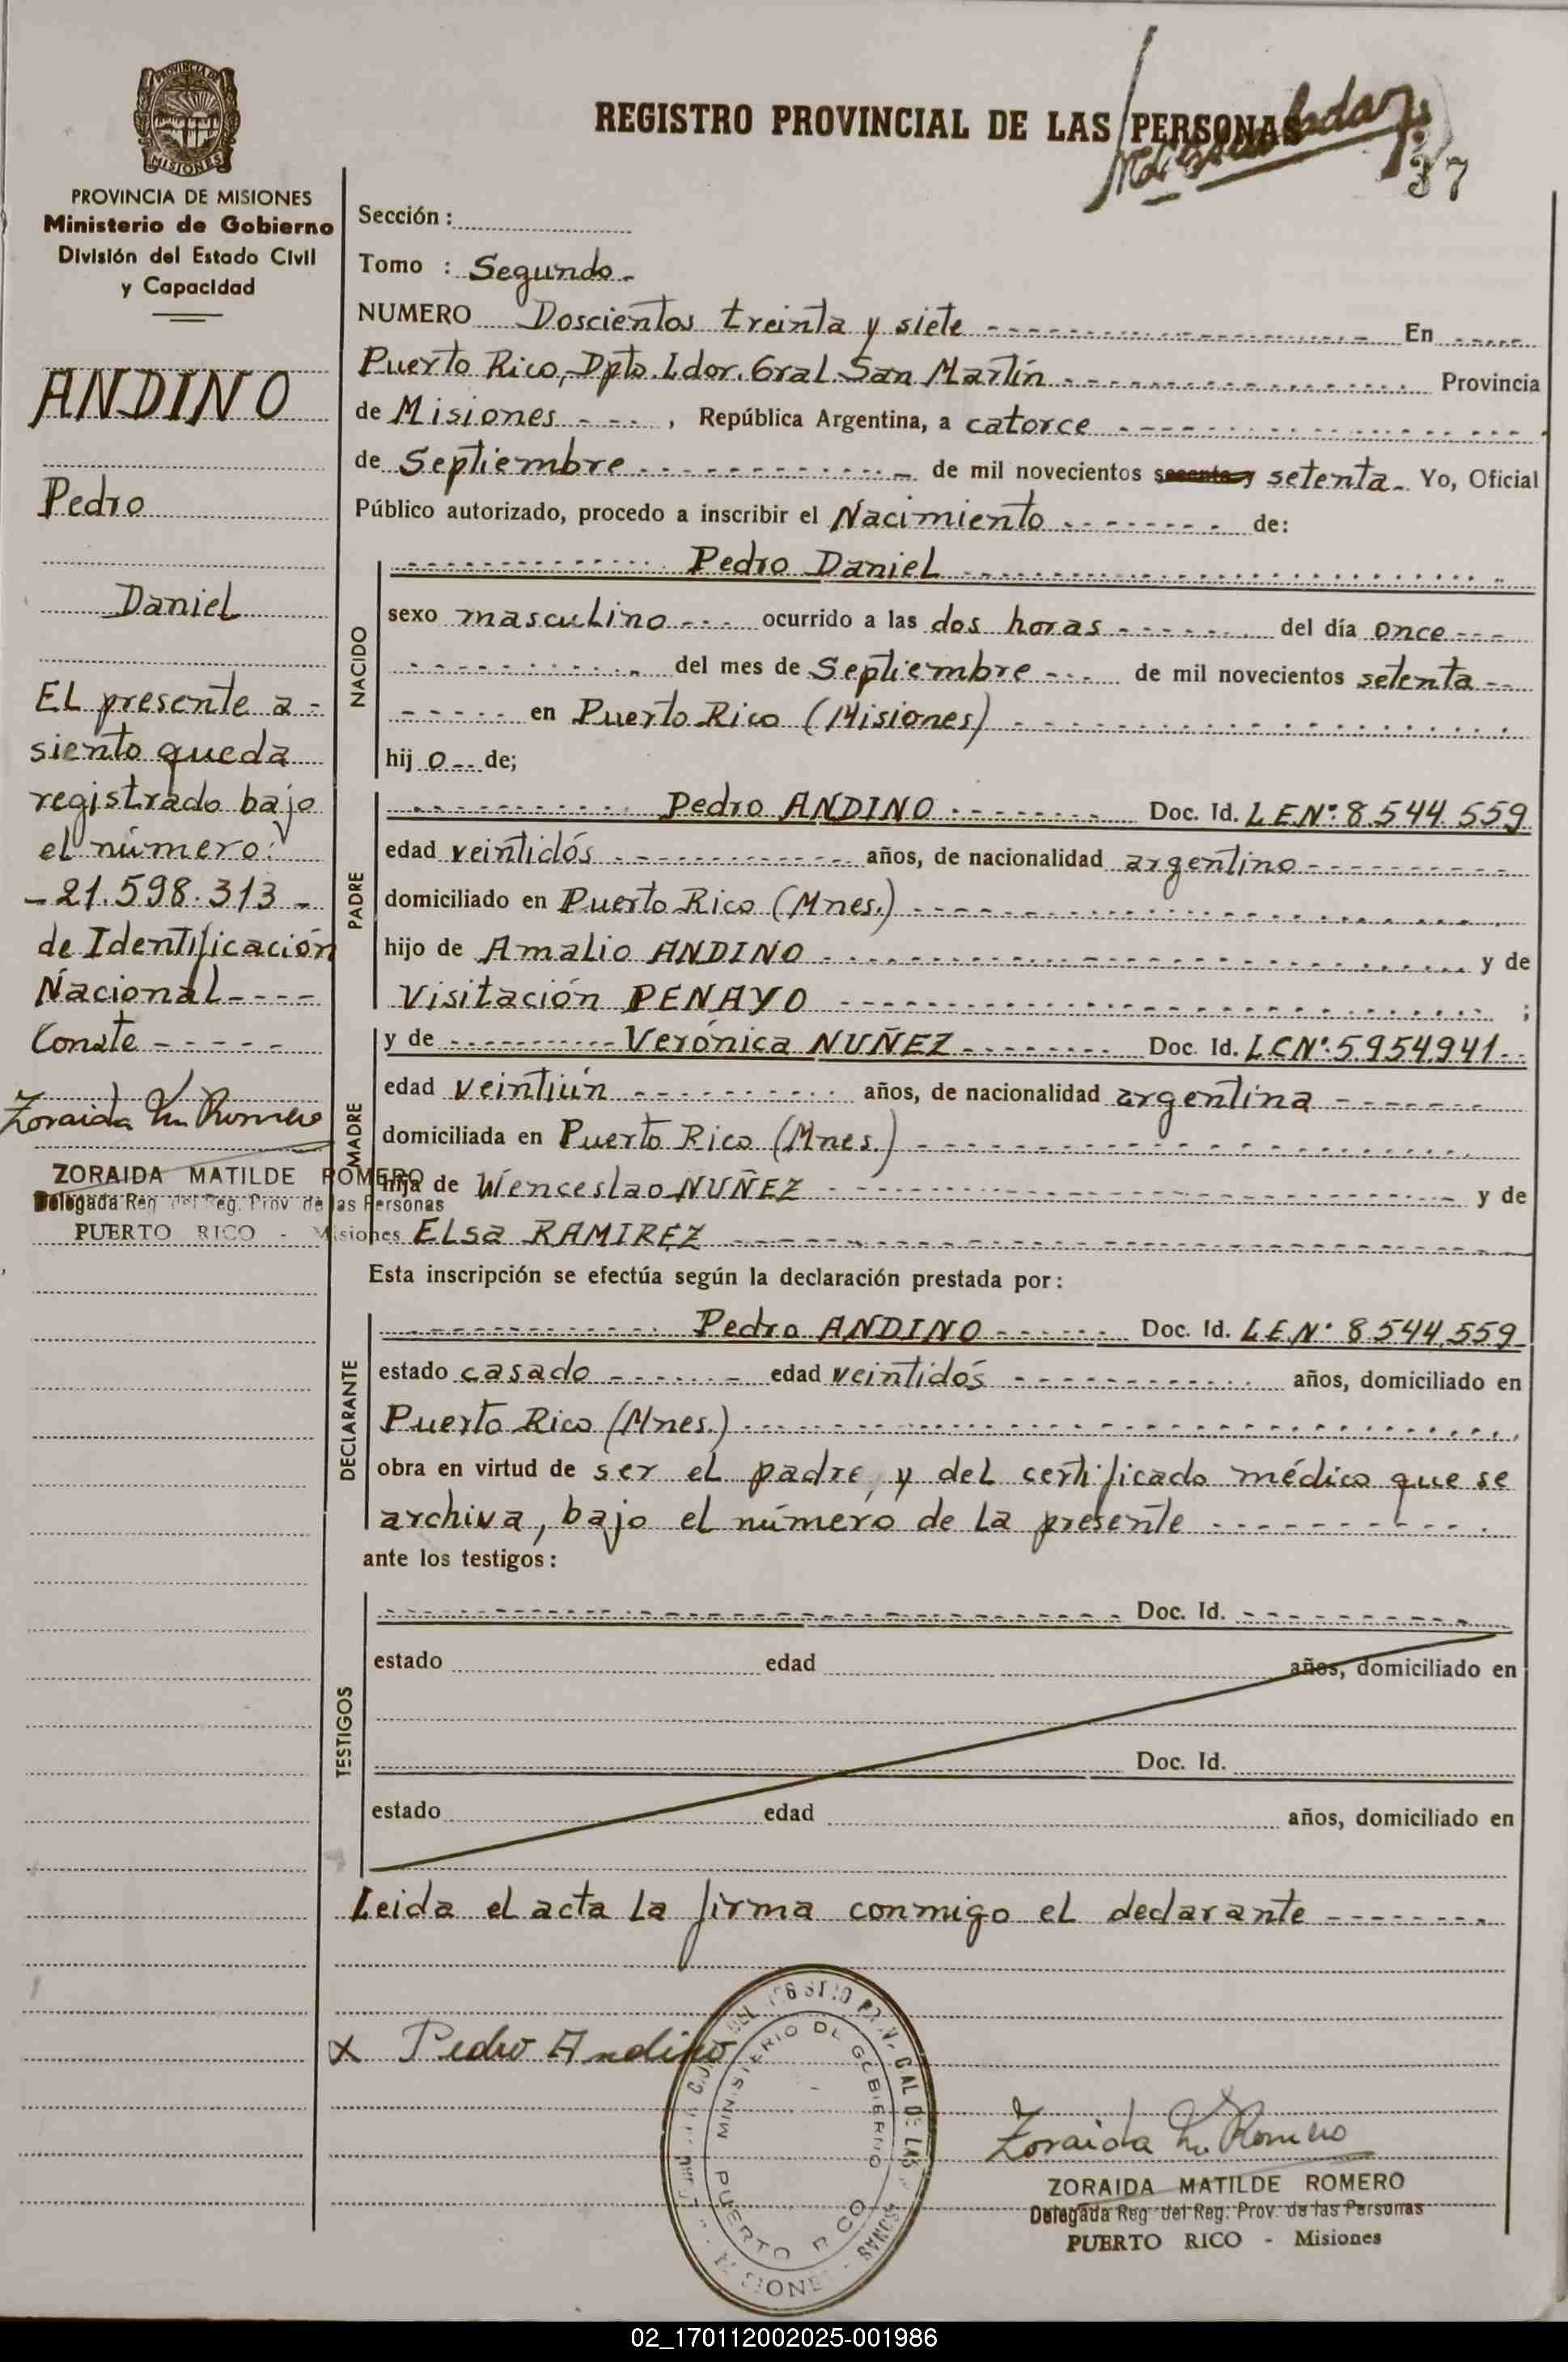 PROVINCIA DE
MISIONES
PROVINCIA DE MISIONES
Ministerio de Gobierno
División del Estado Civil
y Capacidad
ANDINO
Pedro
Daniel
EL presente a-
siento queda
registrado bajo
el número:
-21.598.313-
de Identificación
Nacional----
Conste -----
Zoraida M. Romero
ZORAIDA MATILDE ROMERO
Delegada Reg del Reg. Prov de las Personas
PUERTO RICO - Misiones
REGISTRO PROVINCIAL DE LAS PERSONAS
37
Sección:
Tomo : Segundo-
NUMERO Doscientos treinta y siete En
Puerto Rico, Dpto. Ldor. Gral. San Martín Provincia
de Misiones, República Argentina, a catorce
de Septiembre de mil novecientos sesenta y setenta- Yo, Oficial
Público autorizado, procedo a inscribir el Nacimiento de:
NACIDO
Pedro Daniel
sexo masculino ocurrido a las dos horas del día once
del mes de Septiembre de mil novecientos setenta
en Puerto Rico (Misiones)
hij o de;
PADRE
Pedro ANDINO Doc. Id. LENº: 8.544.559
edad veintidós años, de nacionalidad argentino
domiciliado en Puerto Rico (Mnes.)
hijo de Amalio ANDINO y de
Visitación PENAYO ;
MADRE
y de Verónica NUÑEZ Doc. Id. LCNº: 5954941
edad veintiún años, de nacionalidad argentina
domiciliada en Puerto Rico (Mnes.)
hija de Wenceslao NUÑEZ y de
ELsa RAMIREZ
Esta inscripción se efectúa según la declaración prestada por:
DECLARANTE
Pedro ANDINO Doc. Id. L.E.Nº 8.544.559
estado casado edad veintidós años, domiciliado en
Puerto Rico (Mnes.)
obra en virtud de ser el padre, y del certificado médico que se
archiva, bajo el número de la presente
ante los testigos:
TESTIGOS
Doc. Id.
estado edad años, domiciliado en
Doc. Id.
estado edad años, domiciliado en
Leida el acta la firma conmigo el declarante
x Pedro Andino
MINISTERIO DE GOBIERNO
PUERTO RICO
Zoraida M. Romero
ZORAIDA MATILDE ROMERO
Delegada Reg del Reg. Prov. de las Personas
PUERTO RICO - Misiones
02_170112002025-001986